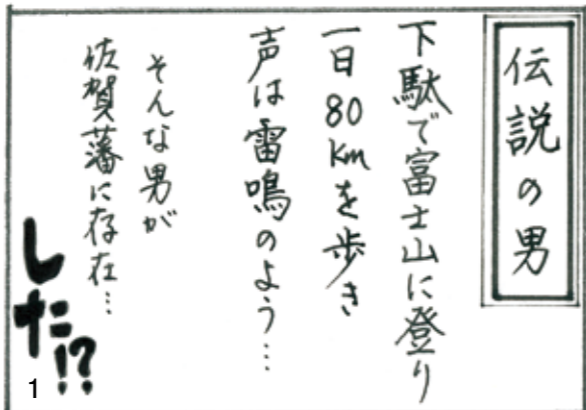 伝説の男
下駄で富士山に登り
一日80kmを歩き
声は雷鳴のよう…
そんな男が
佐賀藩に存在…
した!?
1